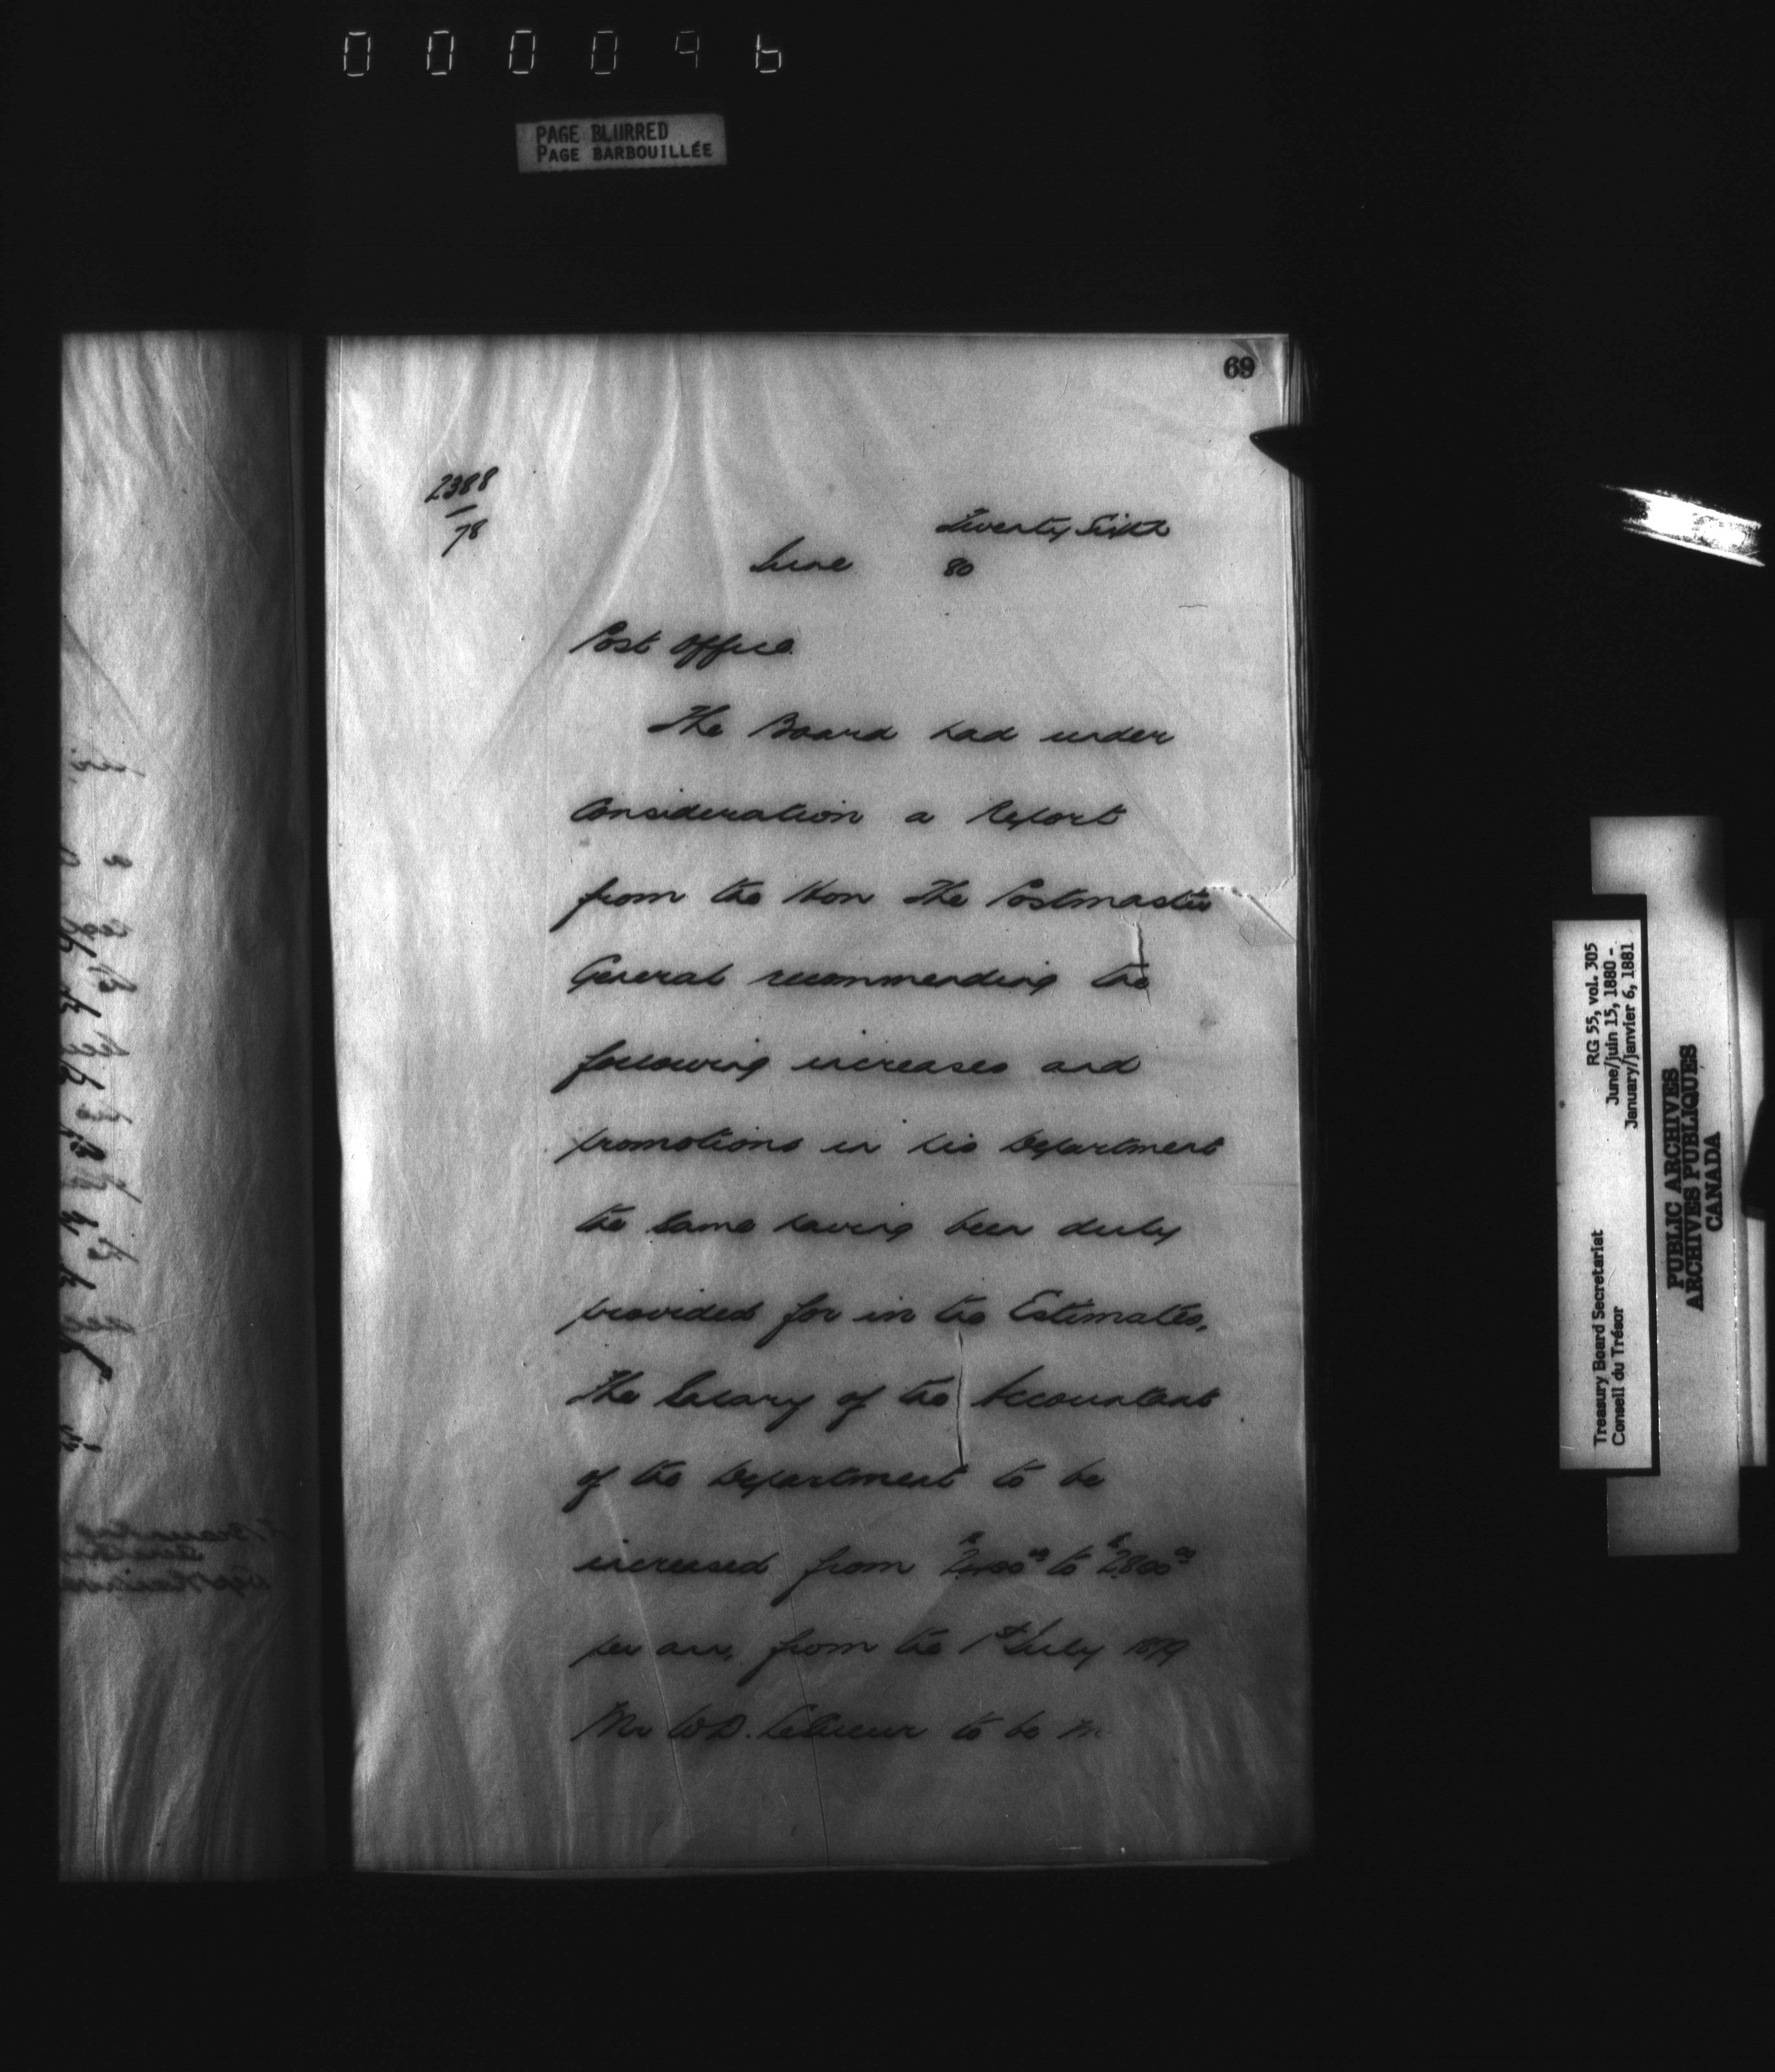 000096
PAGE BLURRED
PAGE BARBOUILLÉE
69
2388
78
Twenty Sixth
June 80
Post Office
The Board had under
Consideration a Report
from the Hon The Postmaster
General recommending the
following increases and
promotions in his Department
the same having been duly
provided for in the Estimates,
The Salary of the Accountant
of the Department to be
increased from to $2800.00
per an, from the 1st July 1879
Mr W.D. LeSueur to be
RG 55, vol. 305
June/juin 15, 1880 -
January/janvier 6, 1881
Treasury Board Secretariat
Conseil du Trésor
PUBLIC ARCHIVES
ARCHIVES PUBLIQUES
CANADA